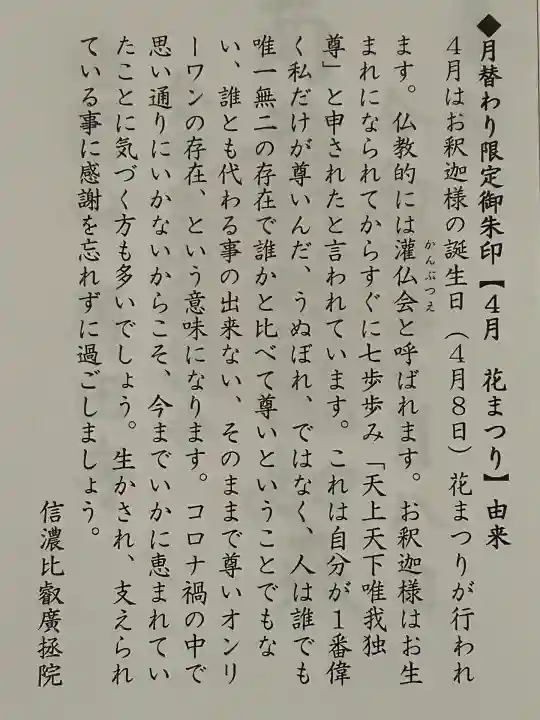 ◆月替わり限定御朱印【４月　花まつり】由来
４月はお釈迦様の誕生日（４月８日）花まつりが行われ
ます。仏教的には灌仏会かんぶつえと呼ばれます。お釈迦様はお生
まれになられてからすぐに七歩歩み「天上天下唯我独
尊」と申されたと言われています。これは自分が１番偉
く私だけが尊いんだ、うぬぼれ、ではなく、人は誰でも
唯一無二の存在で誰かと比べて尊いということでもな
い、誰とも代わる事の出来ない、そのままで尊いオンリ
ーワンの存在、という意味になります。コロナ禍の中で
思い通りにいかないからこそ、今までいかに恵まれてい
たことに気づく方も多いでしょう。生かされ、支えられ
ている事に感謝を忘れずに過ごしましょう。
信濃比叡廣拯院